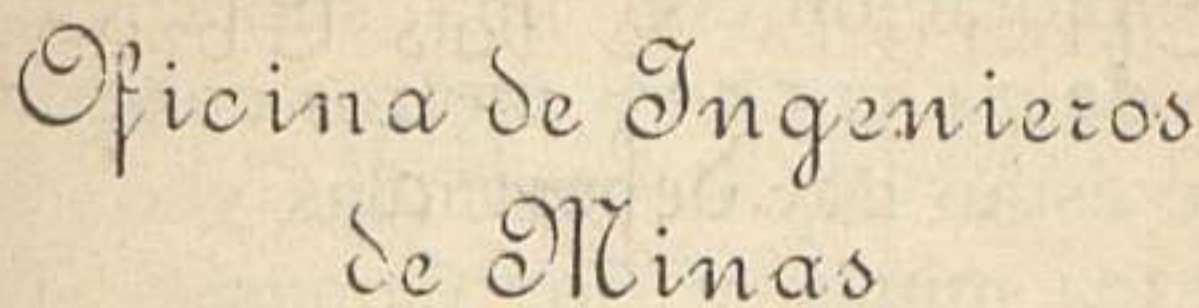 Oficina de Ingenieros
de Minas